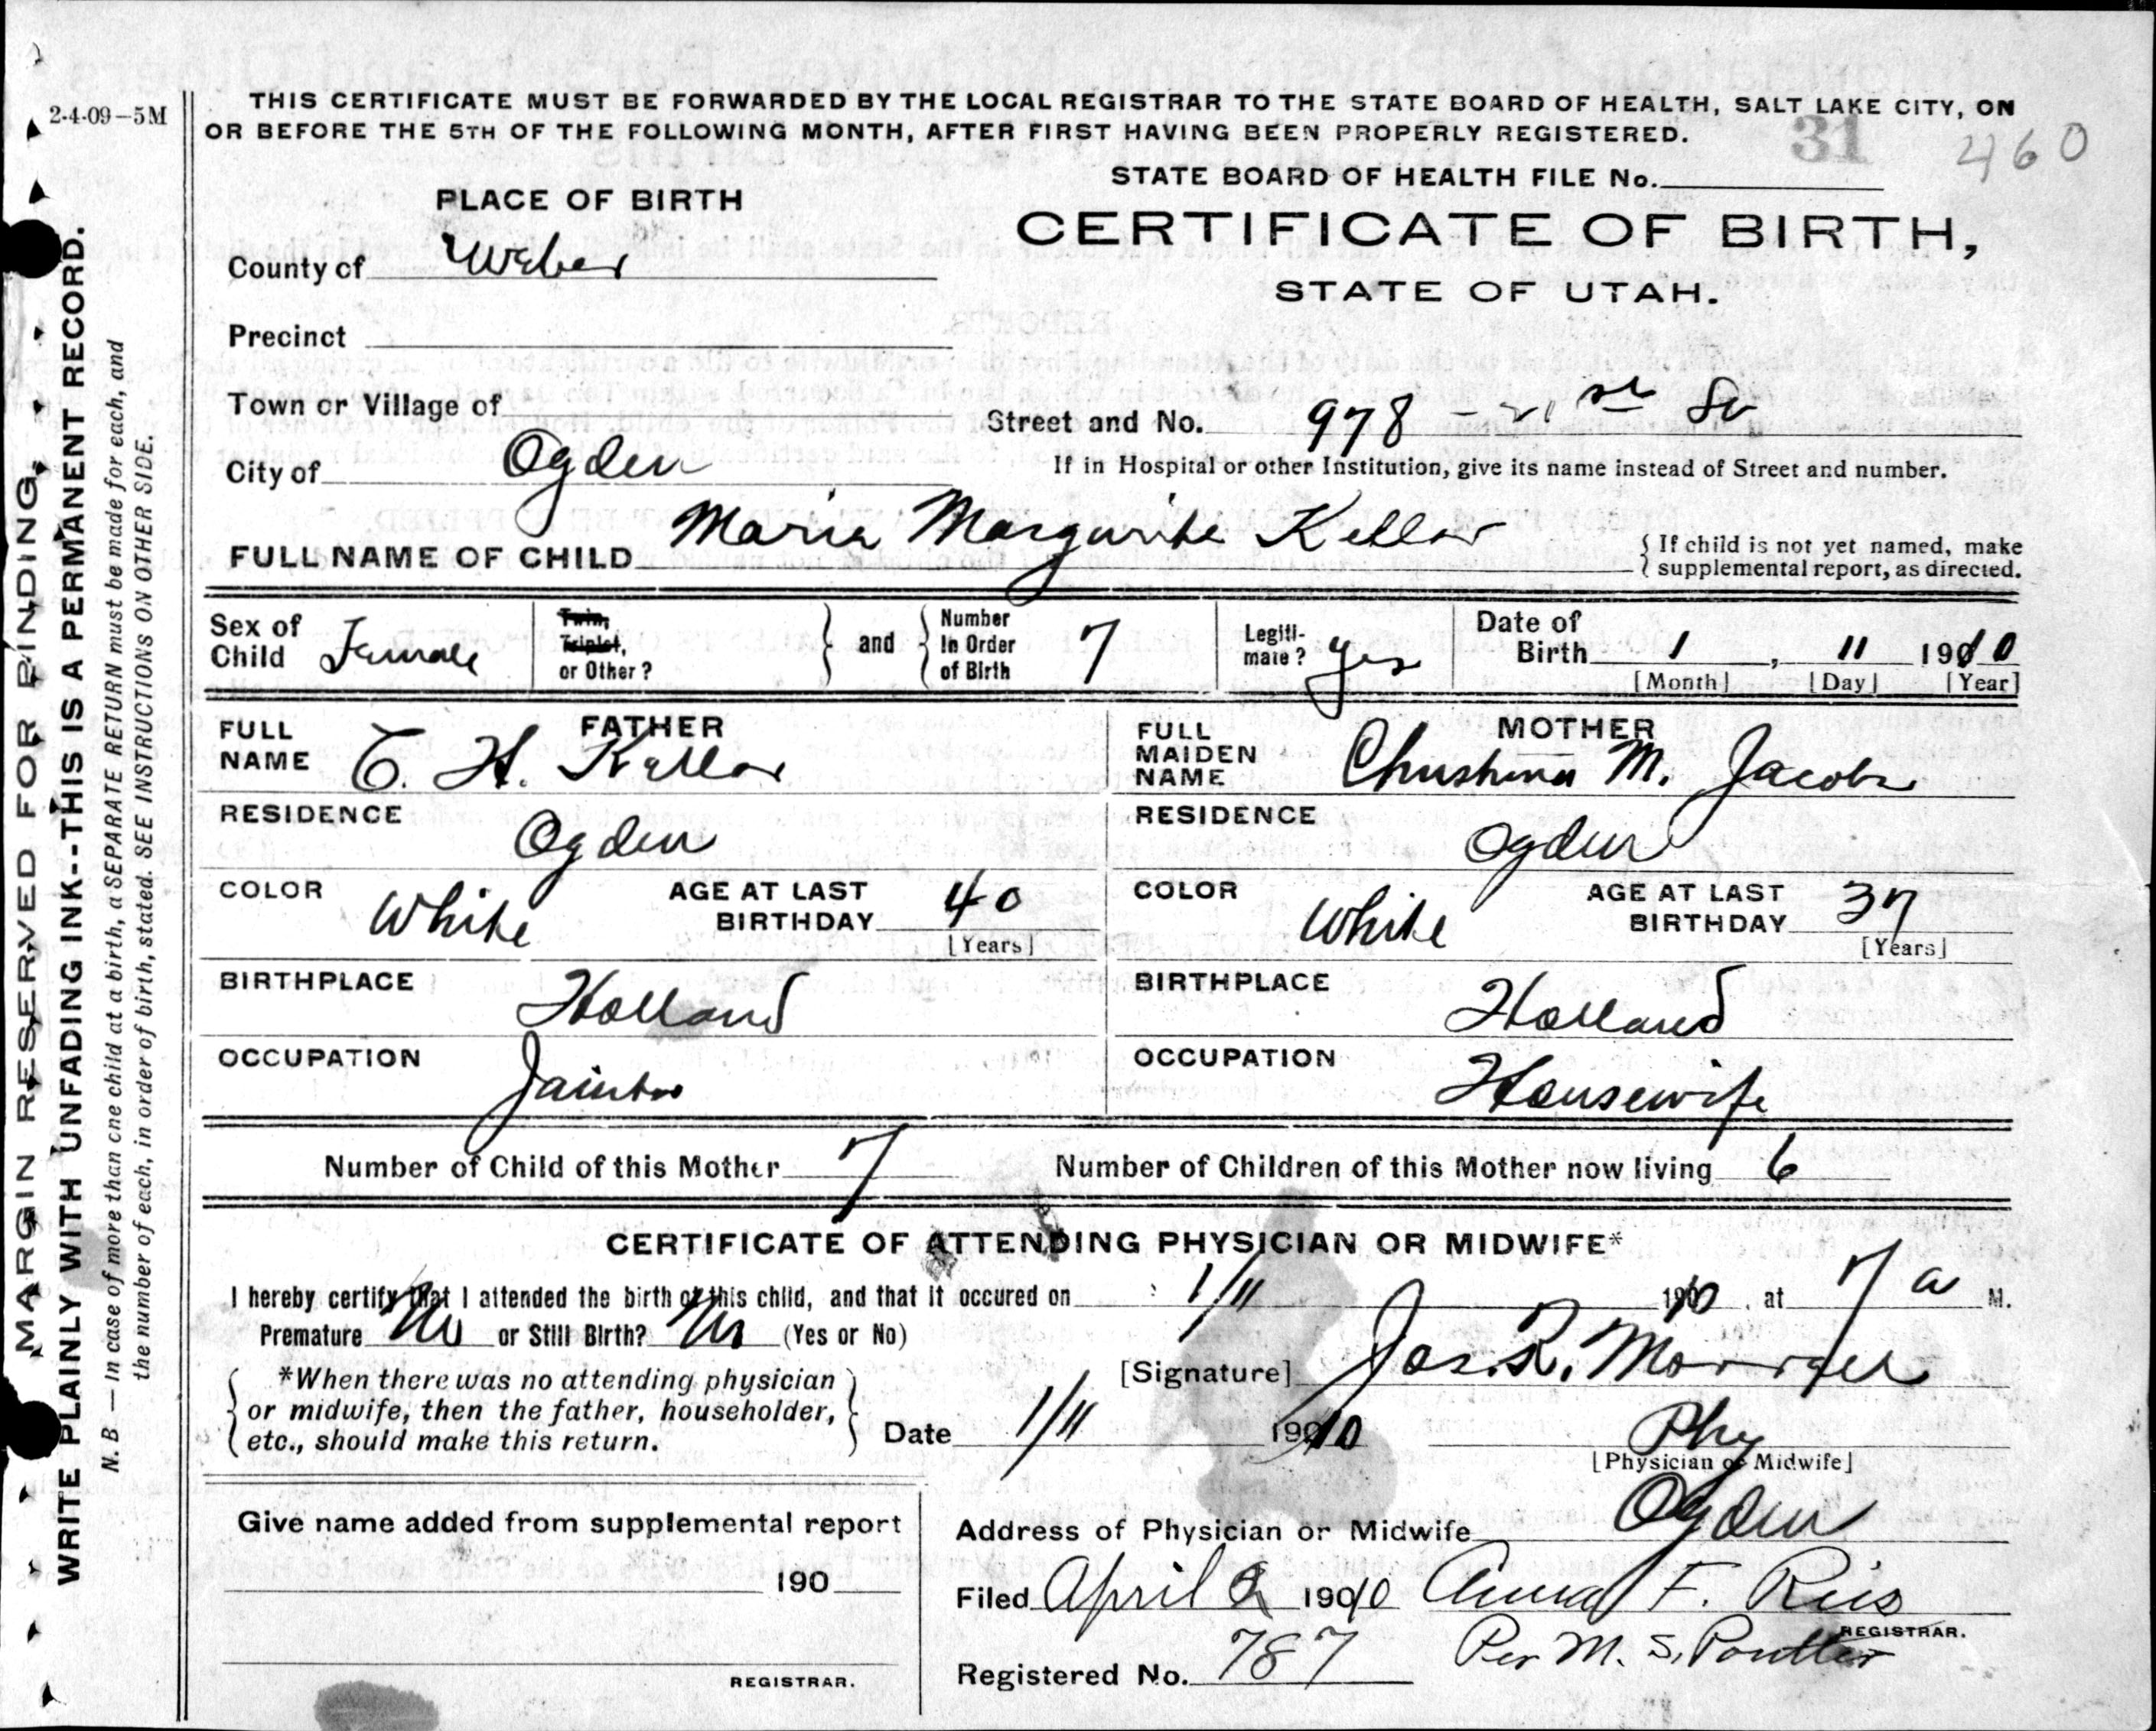 2-4-09-5M
THIS CERTIFICATE MUST BE FORWARDED BY THE LOCAL REGISTRAR TO THE STATE BOARD OF HEALTH, SALT LAKE CITY, ON
OR BEFORE THE 5TH OF THE FOLLOWING MONTH, AFTER FIRST HAVING BEEN PROPERLY REGISTERED.
31
460
STATE BOARD OF HEALTH FILE No.
PLACE OF BIRTH
CERTIFICATE OF BIRTH,
STATE OF UTAH.
County of Weber
Precinct
Town or Village of
Street and No. 978 - 21st St
City of Ogden
If in Hospital or other Institution, give its name instead of Street and number.
FULL NAME OF CHILD Maria Margurite Keller
If child is not yet named, make
supplemental report, as directed.
Sex of Child Female
Twin, Triplet, or Other?
and
Number In Order of Birth 7
Legitimate? yes
Date of Birth 1, 11 1910
[Month] [Day] [Year]
FATHER
FULL NAME C. H. Keller
MOTHER
FULL MAIDEN NAME Christina M. Jacobs
RESIDENCE Ogden
RESIDENCE Ogden
COLOR White AGE AT LAST BIRTHDAY 40 [Years]
COLOR White AGE AT LAST BIRTHDAY 37 [Years]
BIRTHPLACE Holland
BIRTHPLACE Holland
OCCUPATION
OCCUPATION Housewife
Number of Child of this Mother 7 Number of Children of this Mother now living 6
CERTIFICATE OF ATTENDING PHYSICIAN OR MIDWIFE*
I hereby certify that I attended the birth of this child, and that it occured on 1/11 1910, at 7 a M.
Premature No or Still Birth? No (Yes or No)
*When there was no attending physician
or midwife, then the father, householder,
etc., should make this return.
[Signature] Jos. R. Morrell
Date 1/11 1910
Phy
[Physician or Midwife]
Give name added from supplemental report
190
REGISTRAR.
Address of Physician or Midwife Ogden
Filed April 2 1910 Anna F. Ries
REGISTRAR.
Registered No. 787 Per M. S. Poutter
MARGIN RESERVED FOR BINDING.
WRITE PLAINLY WITH UNFADING INK--THIS IS A PERMANENT RECORD.
N. B — In case of more than one child at a birth, a SEPARATE RETURN must be made for each, and
the number of each, in order of birth, stated. SEE INSTRUCTIONS ON OTHER SIDE.